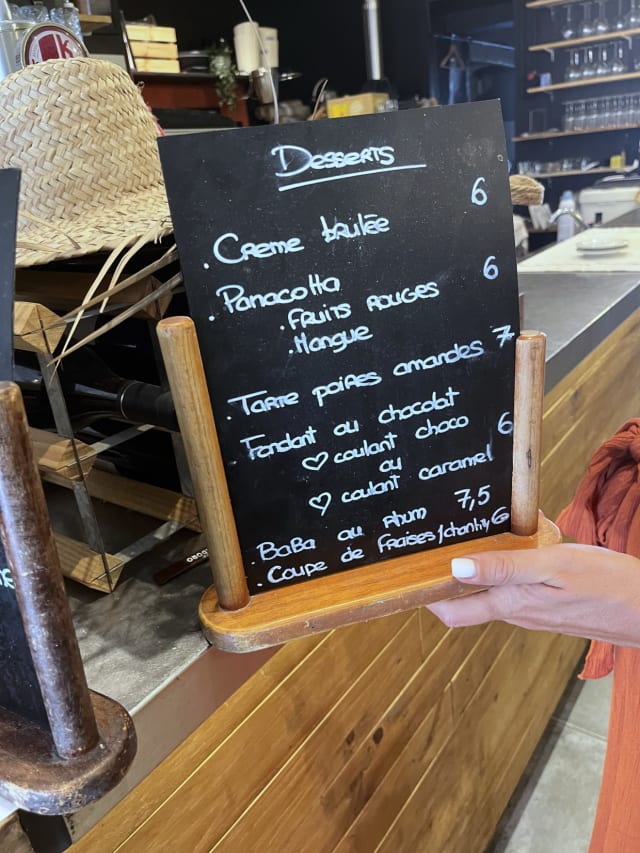 Desserts
. Creme brulée 6
. Panacotta 6
. Fruits rouges
. Mangue
. Tarte poires amandes 7
. Fondant au chocolat
♡ coulant choco 6
ou
♡ coulant caramel
. BaBa au rhum 7,5
. Coupe de fraises/chantilly 6